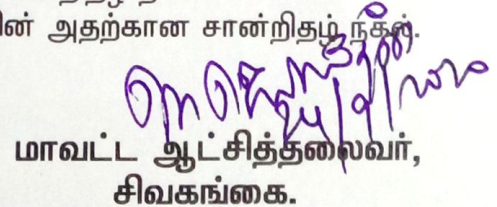 ின் அதற்கான சான்றிதழ் நகல்.
மாவட்ட ஆட்சித்தலைவர்,
சிவகங்கை.